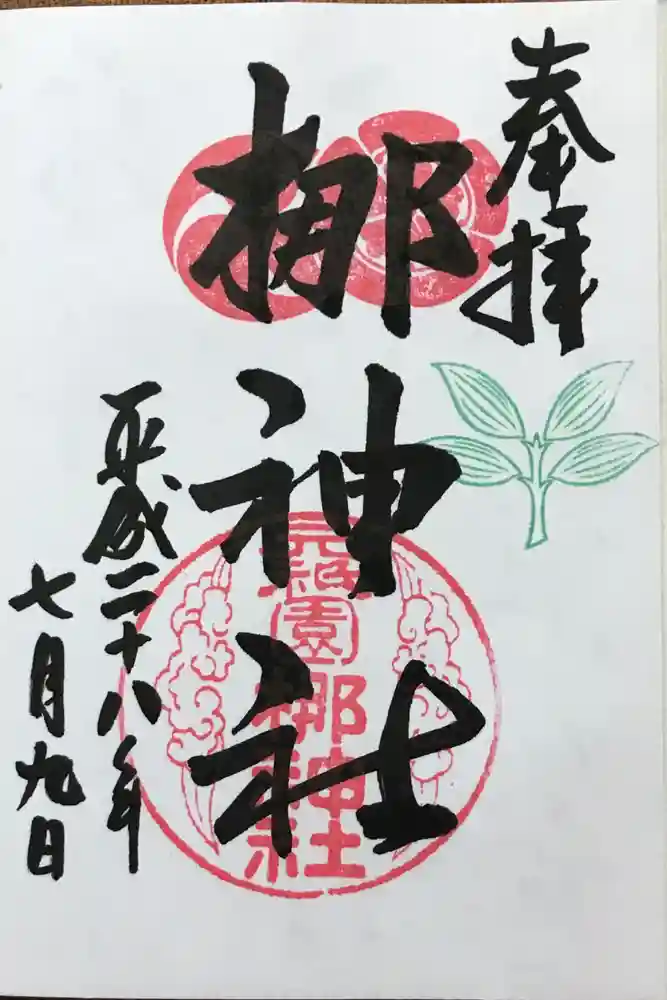 奉拝
梛神社
元祇園梛神社
平成二十八年
七月九日